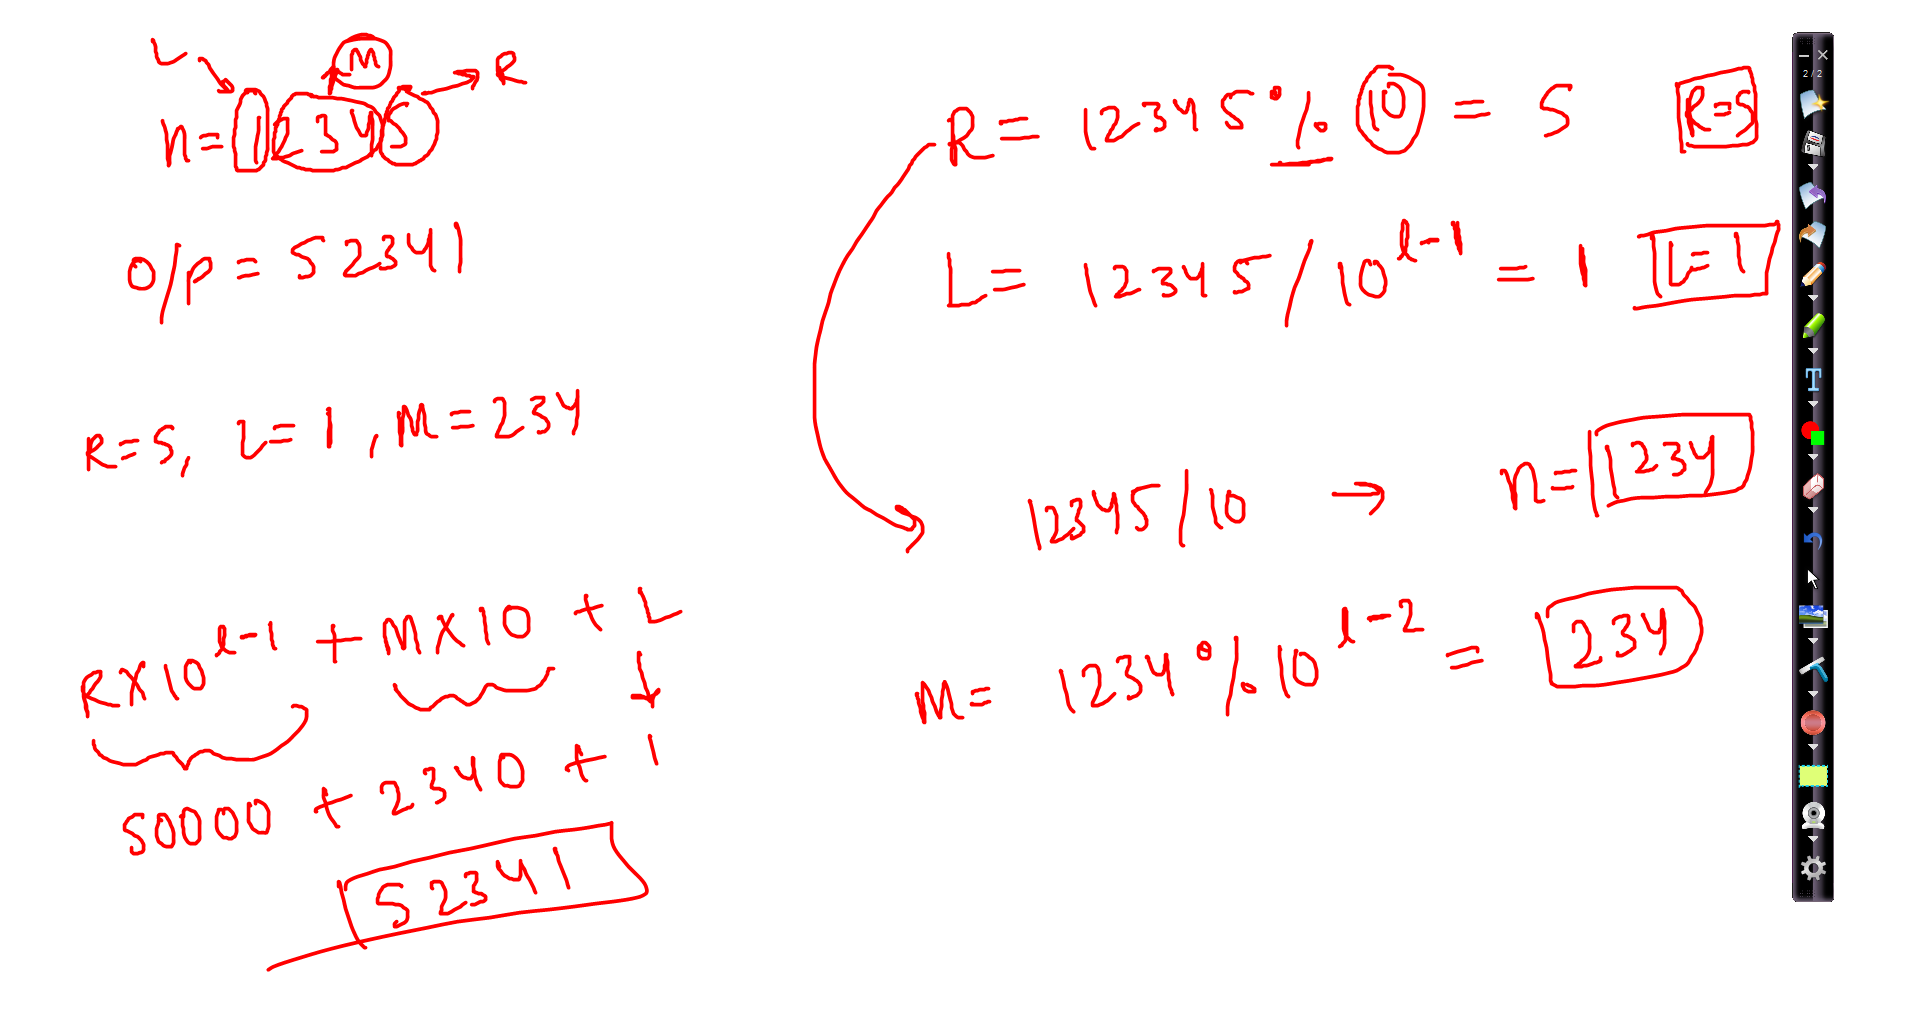 L M R
n = 12345
O/P = 52341
R=5, L=1, M=234
R×10^l-1 + M×10 + L
50000 + 2340 + 1
52341
R = 12345 % 10 = 5 R=5
L = 12345 / 10^l-1 = 1 L=1
12345/10 → n= 1234
M= 1234 % 10^l-2 = 234
2/2
T